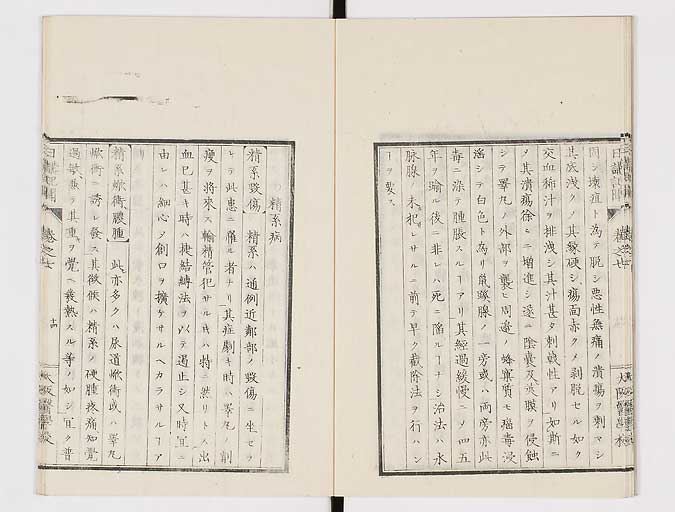 因シ壊疽ト為テ脱シ悪性無痛ノ潰瘍ヲ剩マシ
其底浅クノ其縁硬シ瘍面赤クメ剥脱セル如ク
交血稀汁ヲ排洩シ其汁甚タ刺戟性アリ如斯ニ
メ其潰瘍徐々ニ増進シ遂ニ陰嚢及莢膜ヲ侵蝕
シテ睾丸ノ外部ヲ襲ヒ周邊ノ蜂窠質モ瘍毒浸
滛シテ白色ト為リ鼠蹊腺ノ一旁或ハ両旁亦此
毒ニ染テ腫脹スルーアリ其經過緩慢ニメ四五
年ヲ踰ル後ニ非レハ死ニ陥ルーナシ治法ハ水
脉腺ノ未犯レサルニ前テ早ク截除法ヲ行ハン
ーヲ要ス
日講記聞
卷之七
大阪醫學校
精系病
精系毀傷 精系ハ通例近鄰部ノ毀傷ニ坐セラ
レテ此患ニ罹ル者ナリ其症劇キ時ハ睾丸ノ削
痩ヲ将來ス輸精管犯サル時ハ特ニ然リトス出
血已甚キ時ハ捷結縛法ヲ以テ遏止シ又時宜ニ
由レハ細心ヲ創口ヲ擴ケサルヘカラサルーア
リ
精系焮衝膿腫 此亦多クハ尿道焮衝或ハ睾丸
焮衝ニ誘レ發ス其徴候ハ精系ノ硬腫疼痛知覺
過敏兼テ其重ヲ覺ヘ發熱スル等ノ如シ宜ク普
日講記聞
卷之七
十四
大阪醫學校